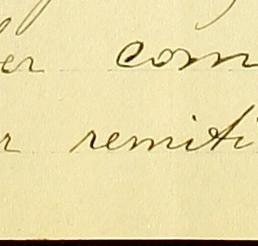 er com
r remiti